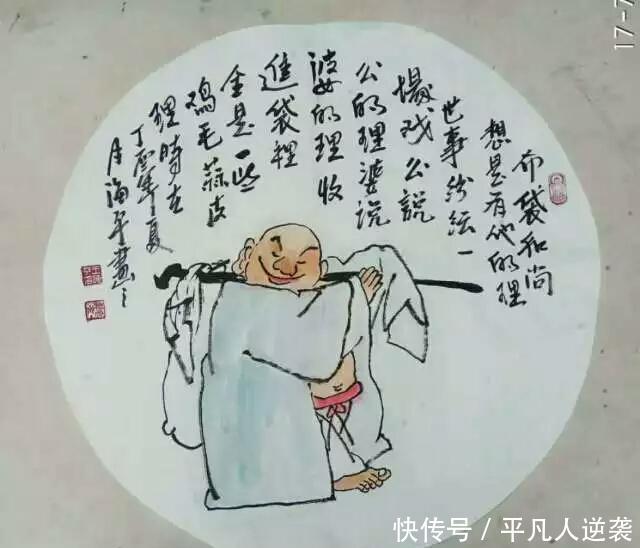 布袋和尚
想是有他的理
世事纷纭一
場戏公説
公的理婆説
婆的理收
進袋裡
全是一些
鸡毛蒜皮
理時在
丁酉年夏
月海平畫
17-7
快传号 / 平凡人逆袭